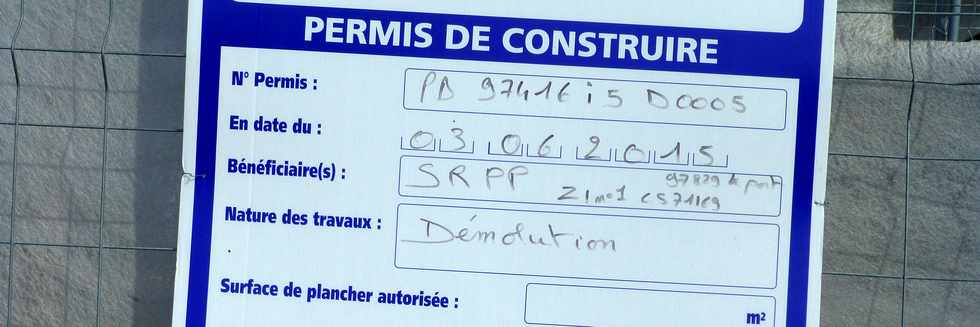 PERMIS DE CONSTRUIRE
N° Permis : PD 97416 15 D0005
En date du : 03 06 2015
Bénéficiaire(s) : SRPP 97829 le port
ZI n°1 CS 71169
Nature des travaux : Démolution
Surface de plancher autorisée : m²